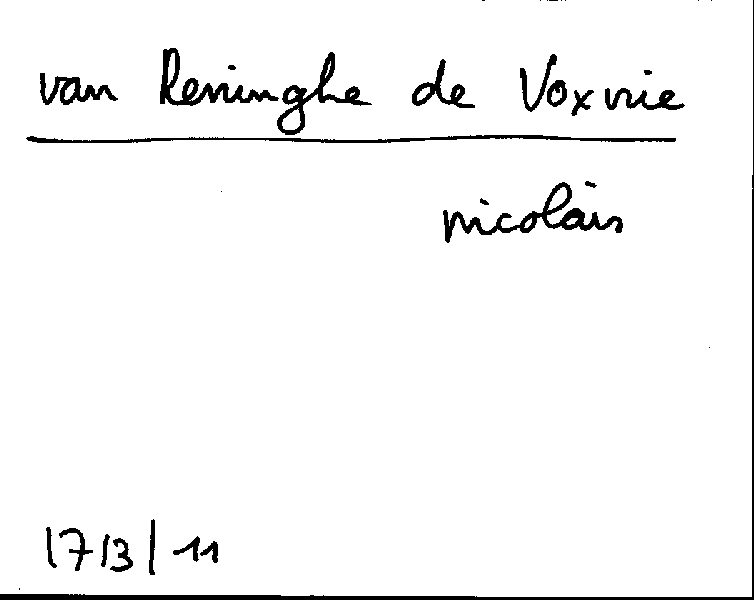 van Reninghe de Voxvrie
nicolais
1713/11